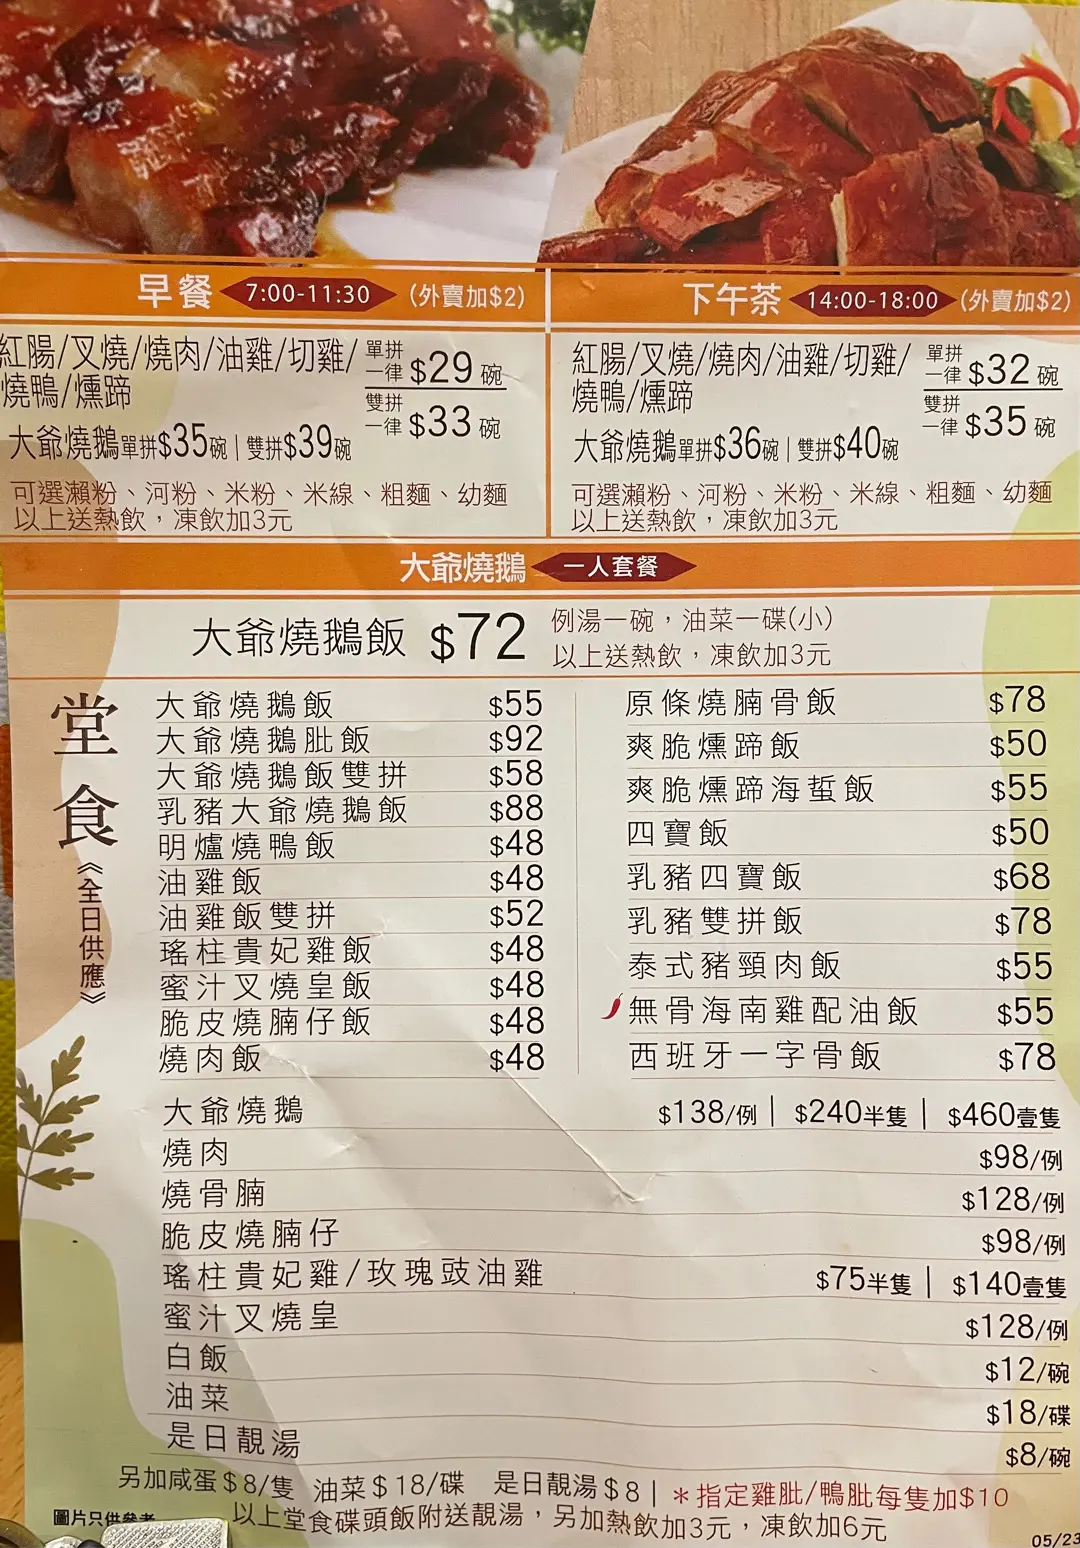 早餐 7:00-11:30 (外賣加$2)
紅腸/叉燒/燒肉/油雞/切雞/
燒鴨/燻蹄
單拼一律 $29 碗
雙拼一律 $33 碗
大爺燒鵝單拼$35碗 | 雙拼$39碗
可選瀨粉、河粉、米粉、米線、粗麵、幼麵
以上送熱飲，凍飲加3元
下午茶 14:00-18:00 (外賣加$2)
紅腸/叉燒/燒肉/油雞/切雞/
燒鴨/燻蹄
單拼一律 $32 碗
雙拼一律 $35 碗
大爺燒鵝單拼$36碗 | 雙拼$40碗
可選瀨粉、河粉、米粉、米線、粗麵、幼麵
以上送熱飲，凍飲加3元
大爺燒鵝 一人套餐
大爺燒鵝飯 $72
例湯一碗，油菜一碟(小)
以上送熱飲，凍飲加3元
堂食
《全日供應》
大爺燒鵝飯 $55
大爺燒鵝肶飯 $92
大爺燒鵝飯雙拼 $58
乳豬大爺燒鵝飯 $88
明爐燒鴨飯 $48
油雞飯 $48
油雞飯雙拼 $52
瑤柱貴妃雞飯 $48
蜜汁叉燒皇飯 $48
脆皮燒腩仔飯 $48
燒肉飯 $48
原條燒腩骨飯 $78
爽脆燻蹄飯 $50
爽脆燻蹄海蜇飯 $55
四寶飯 $50
乳豬四寶飯 $68
乳豬雙拼飯 $78
泰式豬頸肉飯 $55
無骨海南雞配油飯 $55
西班牙一字骨飯 $78
大爺燒鵝 $138/例 | $240半隻 | $460壹隻
燒肉 $98/例
燒骨腩 $128/例
脆皮燒腩仔 $98/例
瑤柱貴妃雞/玫瑰豉油雞 $75半隻 | $140壹隻
蜜汁叉燒皇 $128/例
白飯 $12/碗
油菜 $18/碟
是日靚湯 $8/碗
另加咸蛋$8/隻 油菜$18/碟 是日靚湯$8 | *指定雞肶/鴨肶每隻加$10
以上堂食碟頭飯附送靚湯，另加熱飲加3元，凍飲加6元
圖片只供參考
05/23